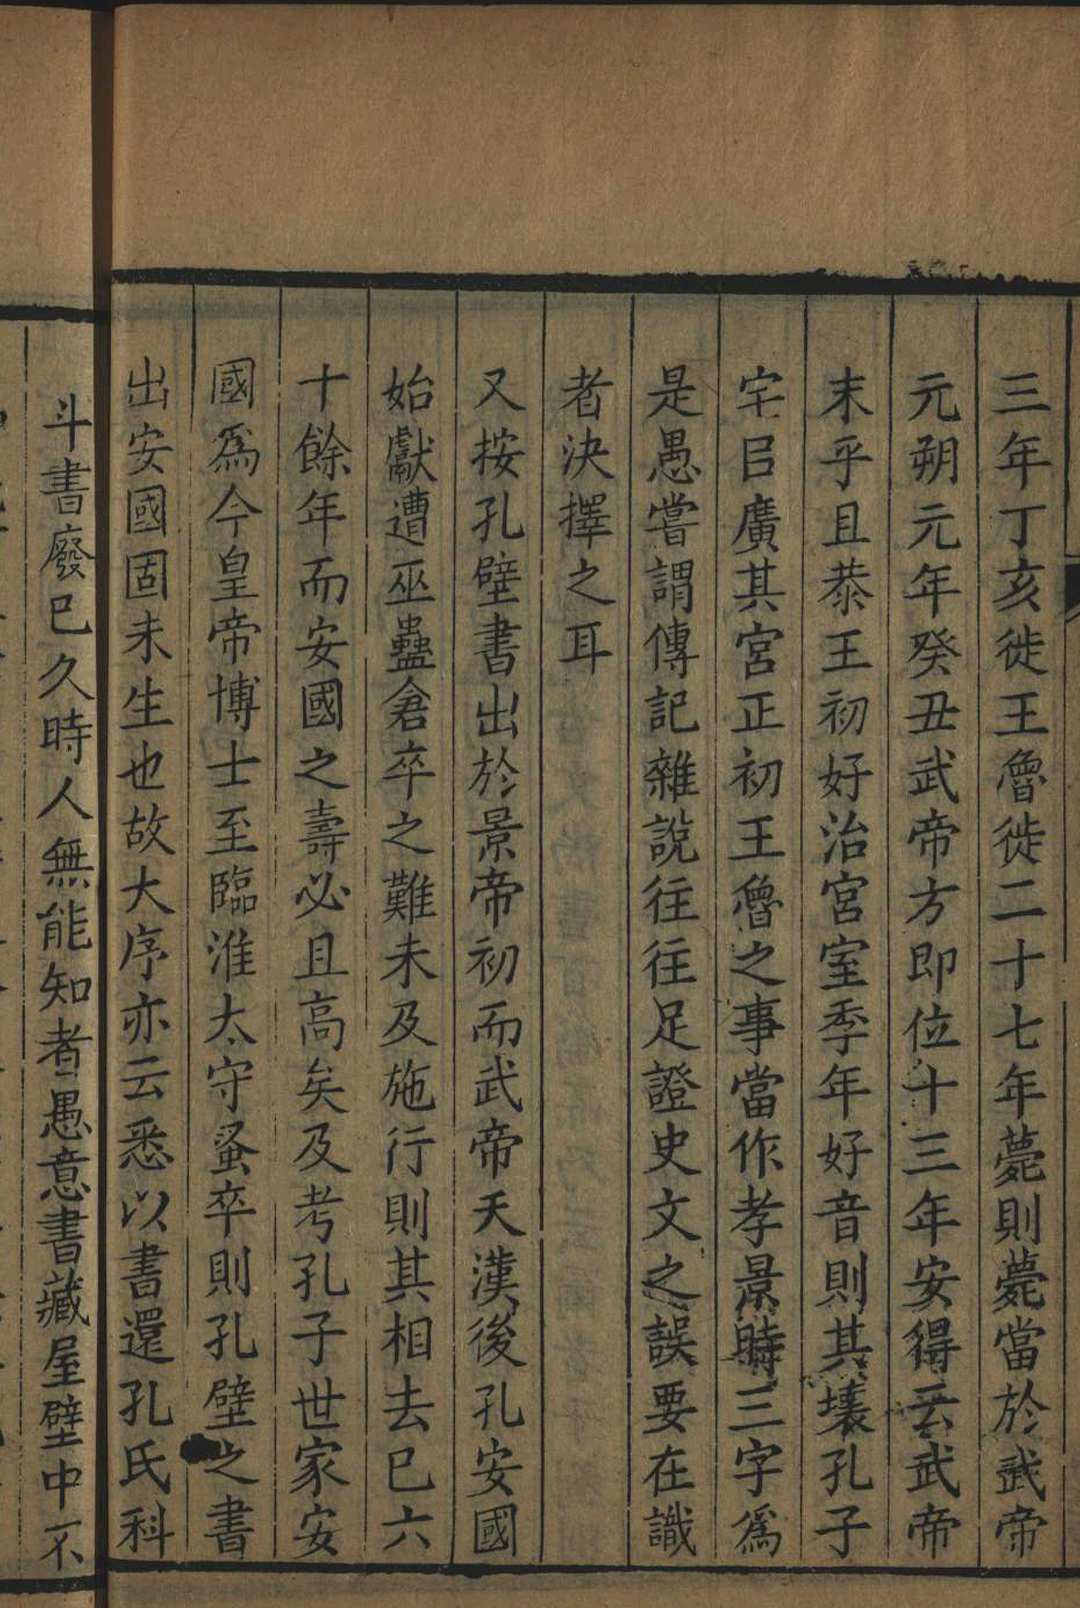 三年丁亥徙王魯徙二十七年薨則薨當於武帝
元朔元年癸丑武帝方即位十三年安得云武帝
末乎且恭王初好治宮室季年好音則其壞孔子
宅㠯廣其宮正初王魯之事當作孝景時三字為
是愚嘗謂傳記雜說往往足證史文之誤要在識
者決擇之耳
又按孔壁書出於景帝初而武帝天漢後孔安國
始獻遭巫蠱倉卒之難未及施行則其相去已六
十餘年而安國之壽必且高矣及考孔子世家安
國為今皇帝博士至臨淮太守蚤卒則孔壁之書
出安國固未生也故大序亦云悉以書還孔氏科
斗書廢已久時人無能知者愚意書藏屋壁中不